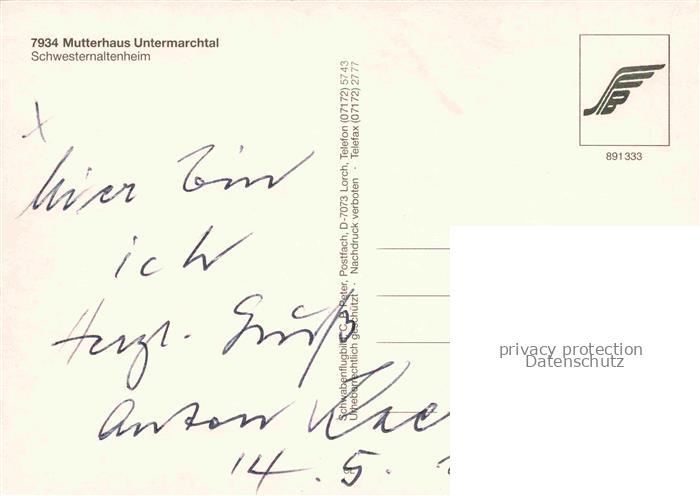 7934 Mutterhaus Untermarchtal
Schwesternaltenheim
891333
Schwabenflugbild, C. P. Peter, Postfach, D-7073 Lorch, Telefon (07172) 5743
Urheberrechtlich geschützt · Nachdruck verboten · Telefax (07172) 2777
x
hier bin
ich
Herzl. Grüß
Anton
14. 5.
privacy protection
Datenschutz